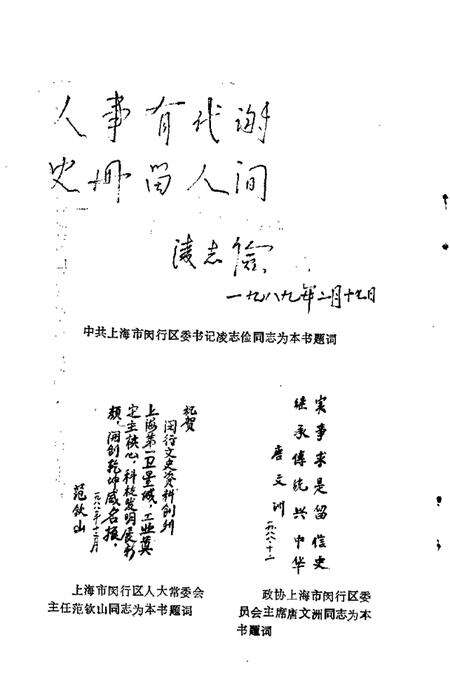 人事有代谢
史册留人间
凌志俭
一九八九年二月十七日
中共上海市闵行区委书记凌志俭同志为本书题词
祝贺
闵行文史资料创刊
上海第一卫星城，工业奠
定主核心，科技发明展新
颜，闵创乾坤威名振，
范钦山
一九八八年十二月
上海市闵行区人大常委会
主任范钦山同志为本书题词
实事求是留信史
继承传统兴中华
唐文洲
一九八八·十二
政协上海市闵行区委
员会主席唐文洲同志为本
书题词